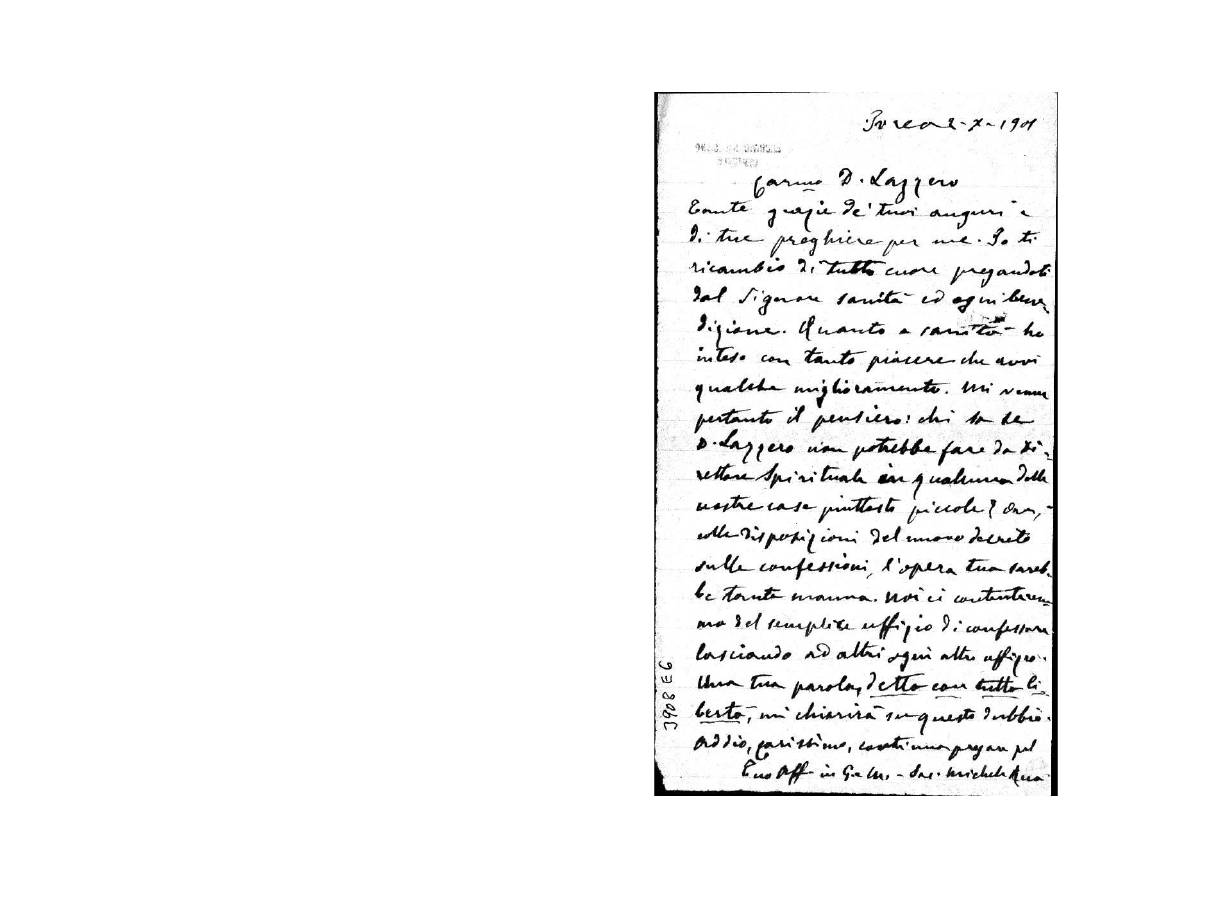 Ivrea 2-X-1901
Carmo D. Lazzero
Tante grazie de' tuoi auguri e
di tue preghiere per me. Io ti
ricambio di tutto cuore pregandoti
dal Signore sanità ed ogni bene-
dizione. Quanto a sanità ho
inteso con tanto piacere che avvi
qualche miglioramento. Mi venne
pertanto il pensiero: chi sa se
D. Lazzero non potrebbe fare da Di-
rettore Spirituale in qualcuna delle
nostre case piuttosto piccole? Ora,
colle disposizioni del nuovo decreto
sulle confessioni, l'opera tua sareb-
be tanta manna. Noi ci contenterem-
mo del semplice uffizio di confessore
lasciando ad altri ogni altro uffizio.
Una tua parola, detta con tutta li-
bertà, mi chiarirà su questo dubbio.
Addio, carissimo, continua pregare pel
Tuo Aff in G. e M. - Sac. Michele Rua
3908 E6